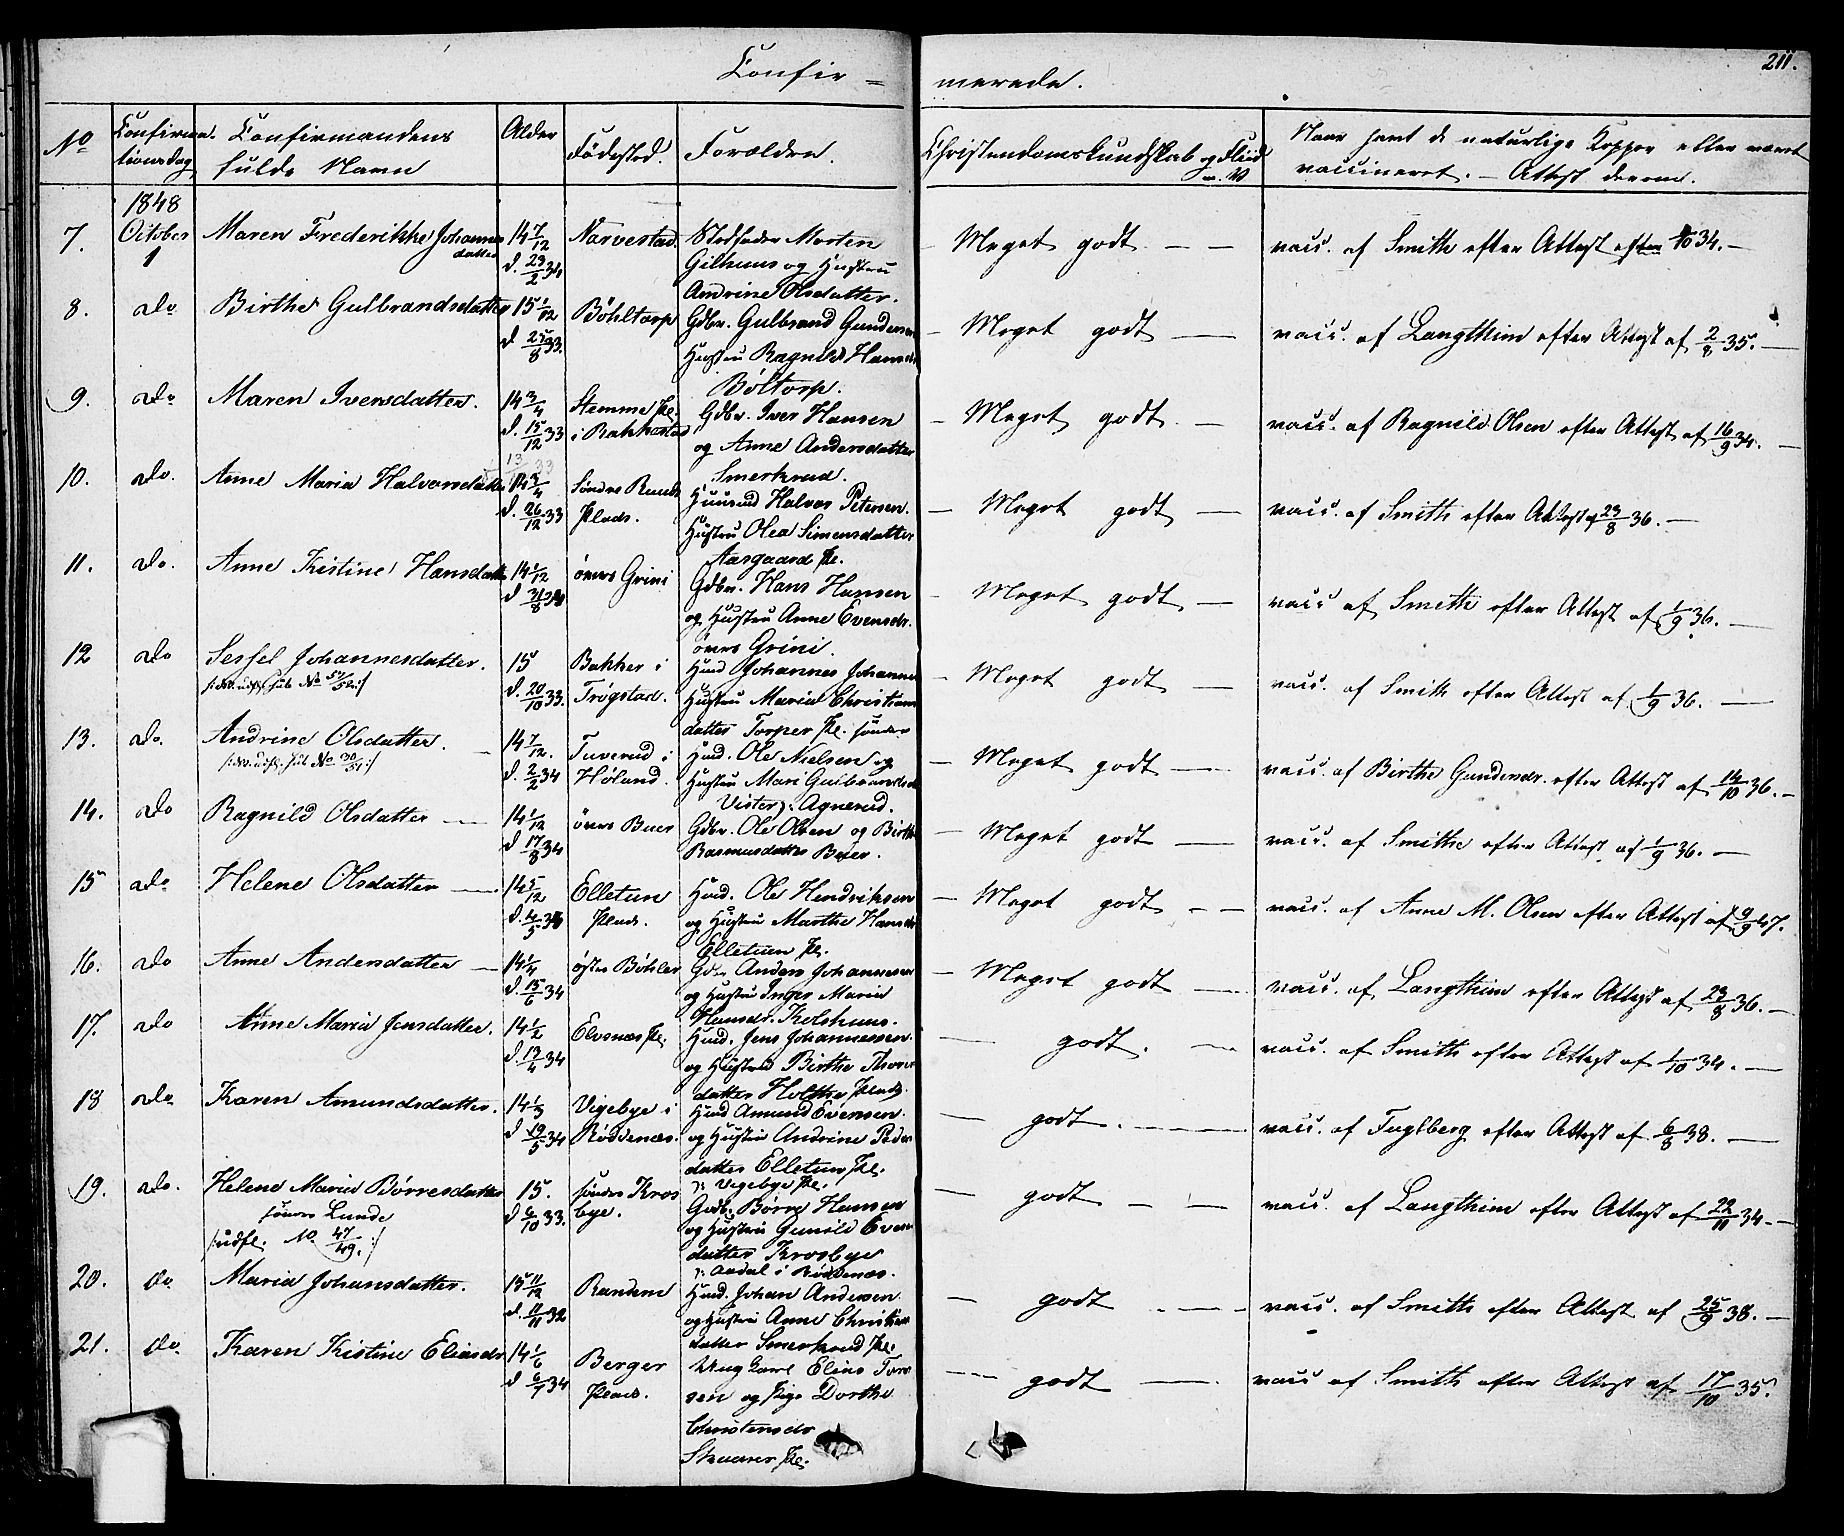 Confir =
merede.
211.
No
Confirma-
tionsdag
Confirmandens
fulde Navn
Alder
Födested.
Forældre.
Christendomskundskab og Fliid
Naar havt de naturlige Kopper eller været
vaccineret. - Attest derom.
1848
7.
October
1
Maren Frederikke Johannes
datter
14 7/12
d. 23/2 34
Narvestad.
Stedfader Morten
Gilhuus og Hustru
Andrine Olsdatter.
Meget godt
vacc. af Smith efter Attest 34.
8.
do
Birthe Gulbrandsdatter
15 1/12
d 25/8 33.
Böhltorp
Gdbr. Gulbrand Gundersen
Hustru Ragnild Hansdr
Böltorp.
Meget godt
vacc. af Langthim efter Attest af 2/8 35.
9.
do
Maren Iversdatter.
14 3/4
d. 15/12 33
Stemme Pl.
i Rakkestad
Gdbr. Iver Hansen
og Anne Andersdatter
Smerkrud.
Meget godt
vacc. af Ragnild Olsen efter Attest af 16/9 34.
10.
do.
Anne Maria Halvorsdatter
14 3/4
d. 26/12 33
Söndre
Plads.
Huusmd Halvor Petersen.
Hustru Olea Simensdatter
Aasgaard Pl.
Meget godt
vacc. af Smith efter Attest af 23/8 36.
11.
do.
Anne Kistine Hansdatter
14 1/12
d 31/8 34
övre Grini
Gdbr. Hans Hansen
og Hustru Anne Evensdr.
övre Grini.
Meget godt
vacc af Smith efter Attest af 1/9 36.
12
do
Sessel Johannesdatter.
15
d. 20/10 33.
Bakker i
Trögstad.
Hmd Johannes Johannes
Hustru Maria Christians
datter Torper Pl. söndre
Meget godt
vacc. af Smith efter Attest af 1/9 36.
13.
do.
Andrine Olsdatter.
14 7/12.
d. 2/2 34
Tuverud i
Höland.
Hmd. Ole Nielsen og
Hustru Mari Gulbrandsdr
Vister Agnerud.
Meget godt
vacc. af Birthe Gundersdr. efter Attest af 14/10 36.
14.
do
Ragnild Olsdatter
14 1/12
d 17/8 34
övre Buer
Gdbr. Ole Olsen og Birthe
Rasmusdatter Buer.
Meget godt
vacc. af Smith efter Attest af 1/9 36.
15
do
Helene Olsdatter
14 5/12
Elletun
Plads.
Hmd. Ole Hendriksen
og Hustru Marthe Hansdr
Elletun Pl.
Meget godt
vacc. af Anne M. Olsen efter Attest af 9/9 47.
16.
do
Anne Andersdatter
14 1/4
d. 15/6 34
östre Böhler
Gdbr Anders Johannesen
og Hustru Inger Maria
Hansdr. Kolshuus.
Meget godt
vacc. af Langthim efter Attest af 23/8 36.
17.
do
Anne Maria Jensdatter.
14 1/2
d. 13/4 34
Elvenæs Pl.
Hmd. Jens Johannessen.
og Hustru Birthe Thores
datter Holthe Plads.
godt.
vacc. af Smith efter Attest af 1/10 34.
18
do
Karen Amundsdatter.
14 1/3
d 19/5 34
Vigebye i
Röddenæs.
Hmd Amund Evensen.
og Hustru Andrine Peder
datter Elletun Pl.
Vegebye Pl.
godt.
vacc. af Fuglberg efter Attest af 6/8 38.
19.
do.
Helene Maria Börresdatter
söndre Lunde
/: udfl. No 47/49. :/
15.
d 6/10 33.
söndre Kros
bye.
Gdbr. Börre Hansen
og Hustru Gunild Even
datter Krosbye
godt
vacc. af Langthim efter Attest af 22/11 34.
20.
do
Maria Johansdatter.
15 11/12
d. 11/11 32
Randem
Aadal i Röddenæs.
Hmd. Johan Andersen
og Hustru Anne Christians
datter Smerkrud Pl.
godt
vacc. af Smith efter Attest af 25/9 38.
21.
do
Karen Kistine Eliasdr
14 1/6
d 6/7 34
Berger
Plads.
Ung Karl Elias Tore
sen og Pige Dorthe
Christensdr
Skuurer Pl.
godt
vacc af Smith efter Attest af 17/10 35.